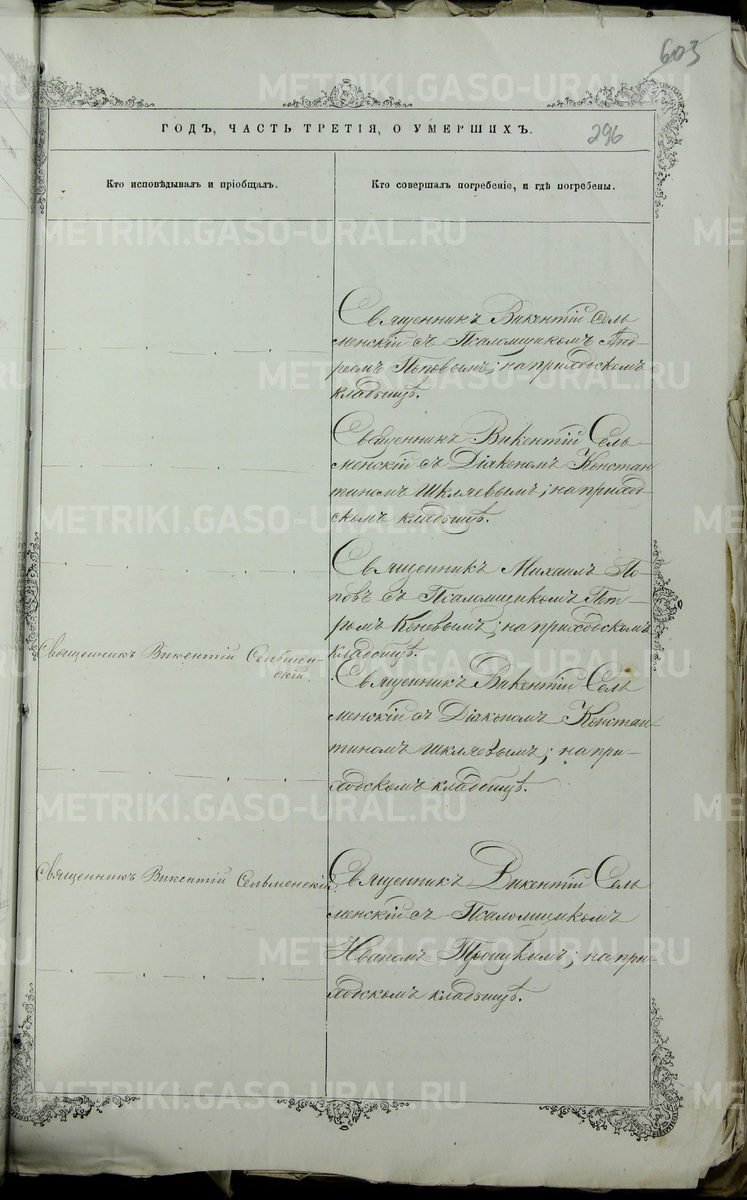 603
ГОДЪ, ЧАСТЬ ТРЕТІЯ, О УМЕРШИХЪ.
296
Кто исповѣдывалъ и пріобщалъ.
Кто совершалъ погребеніе, и гдѣ погребены.
Священникъ Викентій Сель
менскій съ Псаломщикомъ Анд-
реемъ Поповымъ; на приходскомъ
кладбищѣ.
Священникъ Викентій Сель-
менскій съ Діакономъ Констан
тиномъ Шкляевымъ; на приход-
скомъ кладбищѣ.
Священникъ Михаилъ По
повъ съ Псаломщикомъ Пет-
ромъ Коневымъ; на приходскомъ
кладбищѣ.
Священникъ Викентій Сельмен-
скій.
Священникъ Викентій Сель
менскій съ Діакономъ Констан-
тиномъ Шкляевымъ; на при-
ходскомъ кладбищѣ.
Священникъ Викентій Сельменскій.
Священникъ Викентій Сель
менскій съ Псаломщикомъ
Иваномъ Троицкимъ; на при-
ходскомъ кладбищѣ.
METRIKI.GASO-URAL.RU